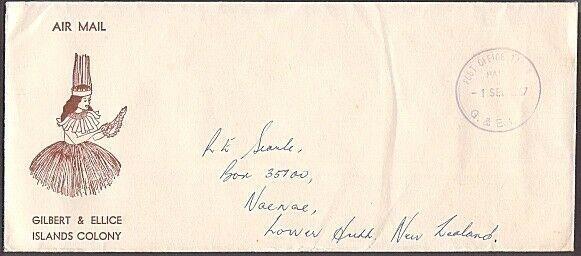 AIR MAIL
POST OFFICE
- 1 SE 7
G. & E. I.
R E Searle,
Box 35100,
Naenae,
Lower Hutt, New Zealand.
GILBERT & ELLICE
ISLANDS COLONY